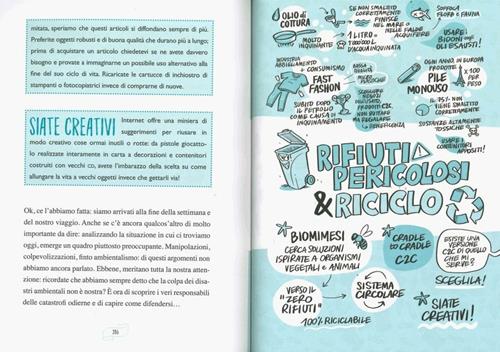 mitata, speriamo che questi articoli si diffondano sempre di più.
Preferite oggetti robusti e di buona qualità che durano più a lungo;
prima di acquistare un articolo chiedetevi se ne avete davvero
bisogno e provate a immaginarne un possibile uso alternativo alla
fine del suo ciclo di vita. Ricaricate le cartucce di inchiostro di
stampanti o fotocopiatrici invece di comprarne di nuove.
SIATE CREATIVI
Internet offre una miniera di
suggerimenti per riusare in
modo creativo cose ormai inutili o rotte: da pistole giocatto-
lo realizzate interamente in carta a decorazioni e contenitori
costruiti con vecchi CD, avete l'imbarazzo della scelta su come
allungare la vita a vecchi oggetti invece che gettarli via!
Ok, ce l'abbiamo fatta: siamo arrivati alla fine della settimana e
del nostro viaggio. Anche se c'è ancora qualcos'altro di molto
importante da dire: analizzando la situazione in cui ci troviamo
oggi, emerge un quadro piuttosto preoccupante. Manipolazioni,
colpevolizzazioni, finto ambientalismo: di questi argomenti non
abbiamo ancora parlato. Ebbene, meritano tutta la nostra atten-
zione: ricordate che abbiamo sempre detto che la colpa dei disa-
stri ambientali non è nostra? È ora di scoprire i veri responsabili
delle catastrofi odierne e di capire come difendersi...
OLIO DI
COTTURA
MOLTO
INQUINANTE
SE NON SMALTITO
CORRETTAMENTE
FINISCE
NEL MARE O
NELLE FALDE
ACQUIFERE
1 LITRO =
1 000 000 L
D'ACQUA INQUINATA
SOFFOCA
FLORA E FAUNA
USARE I
BIDONI PER
OLI ESAUSTI!
INDUSTRIA
ABBIGLIAMENTO
+ CONSUMISMO
FAST
FASHION
SUBITO DOPO
IL PETROLIO
COME CAUSA DI
INQUINAMENTO
BASSA
QUALITÀ
PRODOTTI C2C,
NON BUTTARE
MA REGALARE
IN BENEFICENZA
OGNI ANNO IN EUROPA
PRODOTTE
PILE
MONOUSO
IL 75% NON
VIENE SMALTITO
CORRETTAMENTE
SOSTANZE ALTAMENTE
TOSSICHE
USARE I
CONTENITORI
APPOSITI!
RIFIUTI
PERICOLOSI
& RICICLO
BIOMIMESI
CERCA SOLUZIONI
ISPIRATE A ORGANISMI
VEGETALI E ANIMALI
CRADLE
TO CRADLE
C2C
ESISTE UNA
VERSIONE
C2C DI QUELLO
CHE MI
SERVE?
SCEGLILA!
VERSO IL
"ZERO
RIFIUTI"
SISTEMA
CIRCOLARE
100% RICICLABILE
SIATE
CREATIVI!